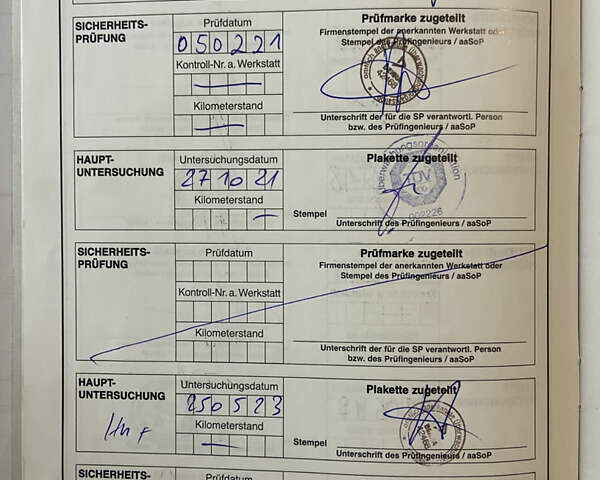 SICHERHEITS-
PRÜFUNG
Prüfdatum
050221
Kontroll-Nr. a. Werkstatt
Kilometerstand
Prüfmarke zugeteilt
Firmenstempel der anerkannten Werkstatt oder
Stempel des Prüfingenieurs / aaSoP
Unterschrift der für die SP verantwortl. Person
bzw. des Prüfingenieurs / aaSoP
HAUPT-
UNTERSUCHUNG
Untersuchungsdatum
271021
Kilometerstand
Plakette zugeteilt
Überwachungsorganisation
TÜV
002226
Stempel
Unterschrift des Prüfingenieurs / aaSoP
SICHERHEITS-
PRÜFUNG
Prüfdatum
Kontroll-Nr. a. Werkstatt
Kilometerstand
Prüfmarke zugeteilt
Firmenstempel der anerkannten Werkstatt oder
Stempel des Prüfingenieurs / aaSoP
Unterschrift der für die SP verantwortl. Person
bzw. des Prüfingenieurs / aaSoP
HAUPT-
UNTERSUCHUNG
Untersuchungsdatum
250523
Kilometerstand
Plakette zugeteilt
Stempel
Unterschrift des Prüfingenieurs / aaSoP
SICHERHEITS-
Prüfdatum
Prüfmarke zugeteilt